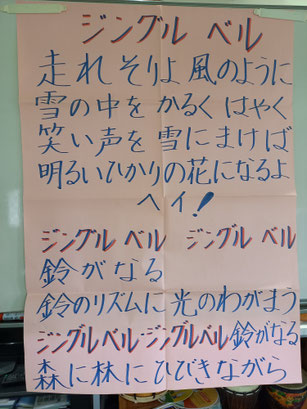 ジングル ベル
走れ そりよ 風のように
雪の中を かるく はやく
笑い声を 雪にまけば
明るいひかりの花になるよ
ヘイ!
ジングル ベル ジングル ベル
鈴がなる
鈴のリズムに光のわがまう
ジングルベル・ジングルベル 鈴がなる
森に林にひびきながら